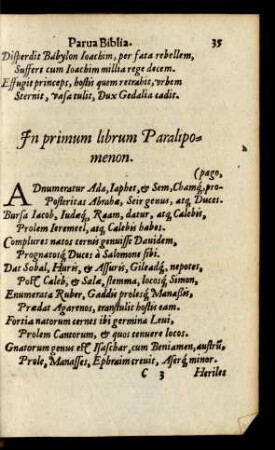 Parua Biblia. 35
Disperdit Babylon Ioachim, per fata rebellem,
Suffert cum Ioachim millia rege decem.
Effugit princeps, hostis quem retrahit, vrbem
Sternit, vasa tulit, Dux Gedalia cadit.
In primum librum Paralipo-
menon.
(pago,
ADnumeratur Ada, Iaphet, & Sem, Chamq́, pro-
Posteritas Abrahæ, Seir genus, atq; Duces.
Bursa Iacob, Iudæq́, Raam, datur, atq; Calebis,
Prolem Ieremeel, atq; Calebis habes.
Complures natos cernis genuisse Dauidem,
Prognatosq́; Duces à Salomone sibi.
Dat Sobal, Huris, & Assuris, Gileadq́, nepotes,
Post Caleb, & Sala, stemma, locosq́, Simon,
Enumerata Ruber, Gaddis prolesq́; Manassis,
Prædat Agarenos, transtulit hostis eam.
Fortia natorum cernes ibi germina Leui,
Prolem Cantorum, & quos tenuere locos.
Gnatorum genus est Isaschar, cum Beniamen, austrũ,
Prole, Manasses, Ephraim creuit, Aserq́; minor.
C 3 Heriles